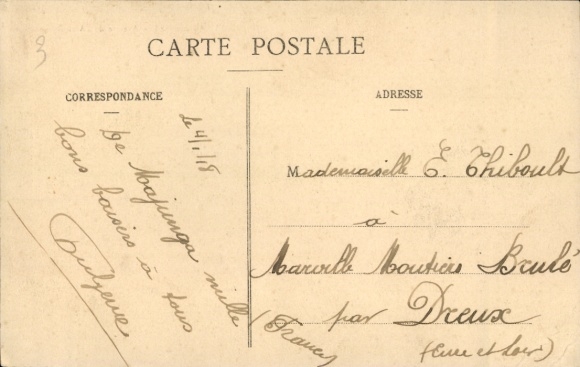 3
CARTE POSTALE
CORRESPONDANCE
le 4/1/18
De Majunga mille
bons baisers à tous
ADRESSE
Mademoiselle E. Thiboult
à
Marville Moutiers Brulé
par Dreux
(France)
(Eure et Loir)